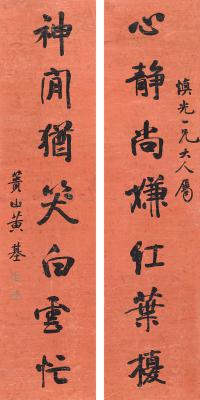 心静尚嫌红葉擾
慎光一兄大人属
神閒猶笑白雲忙
簣山黄基